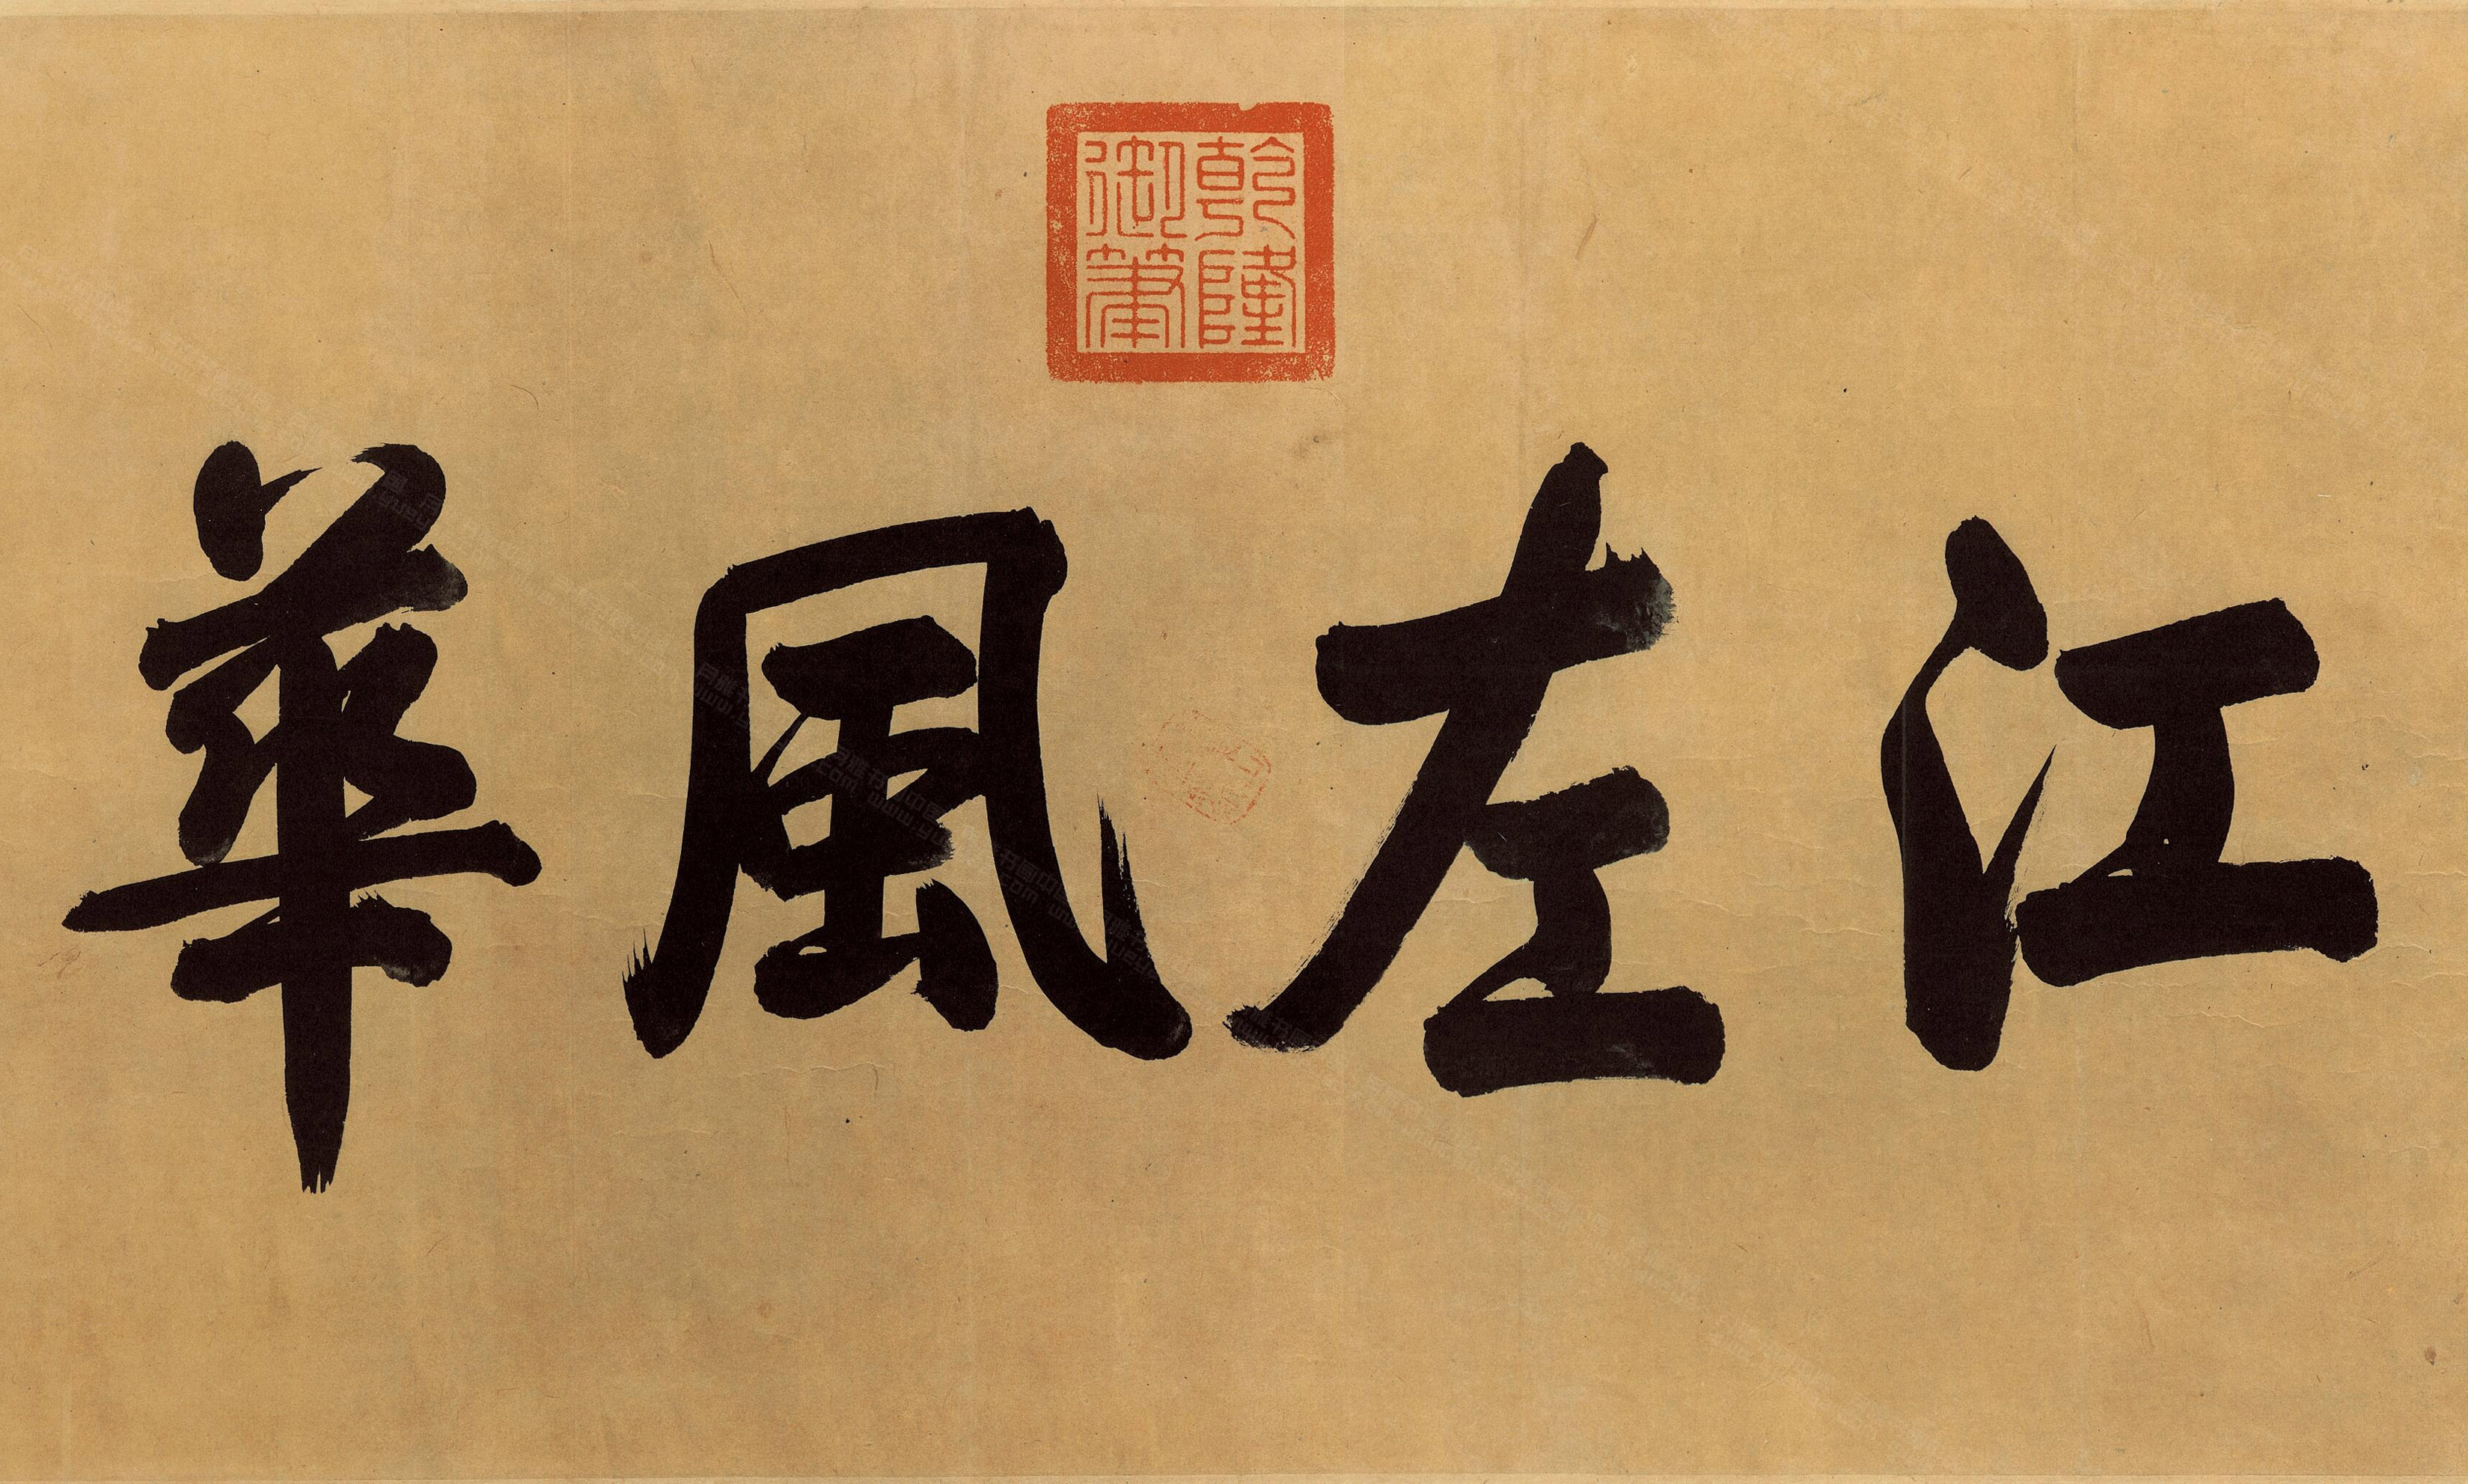 江左風華
乾隆
御筆